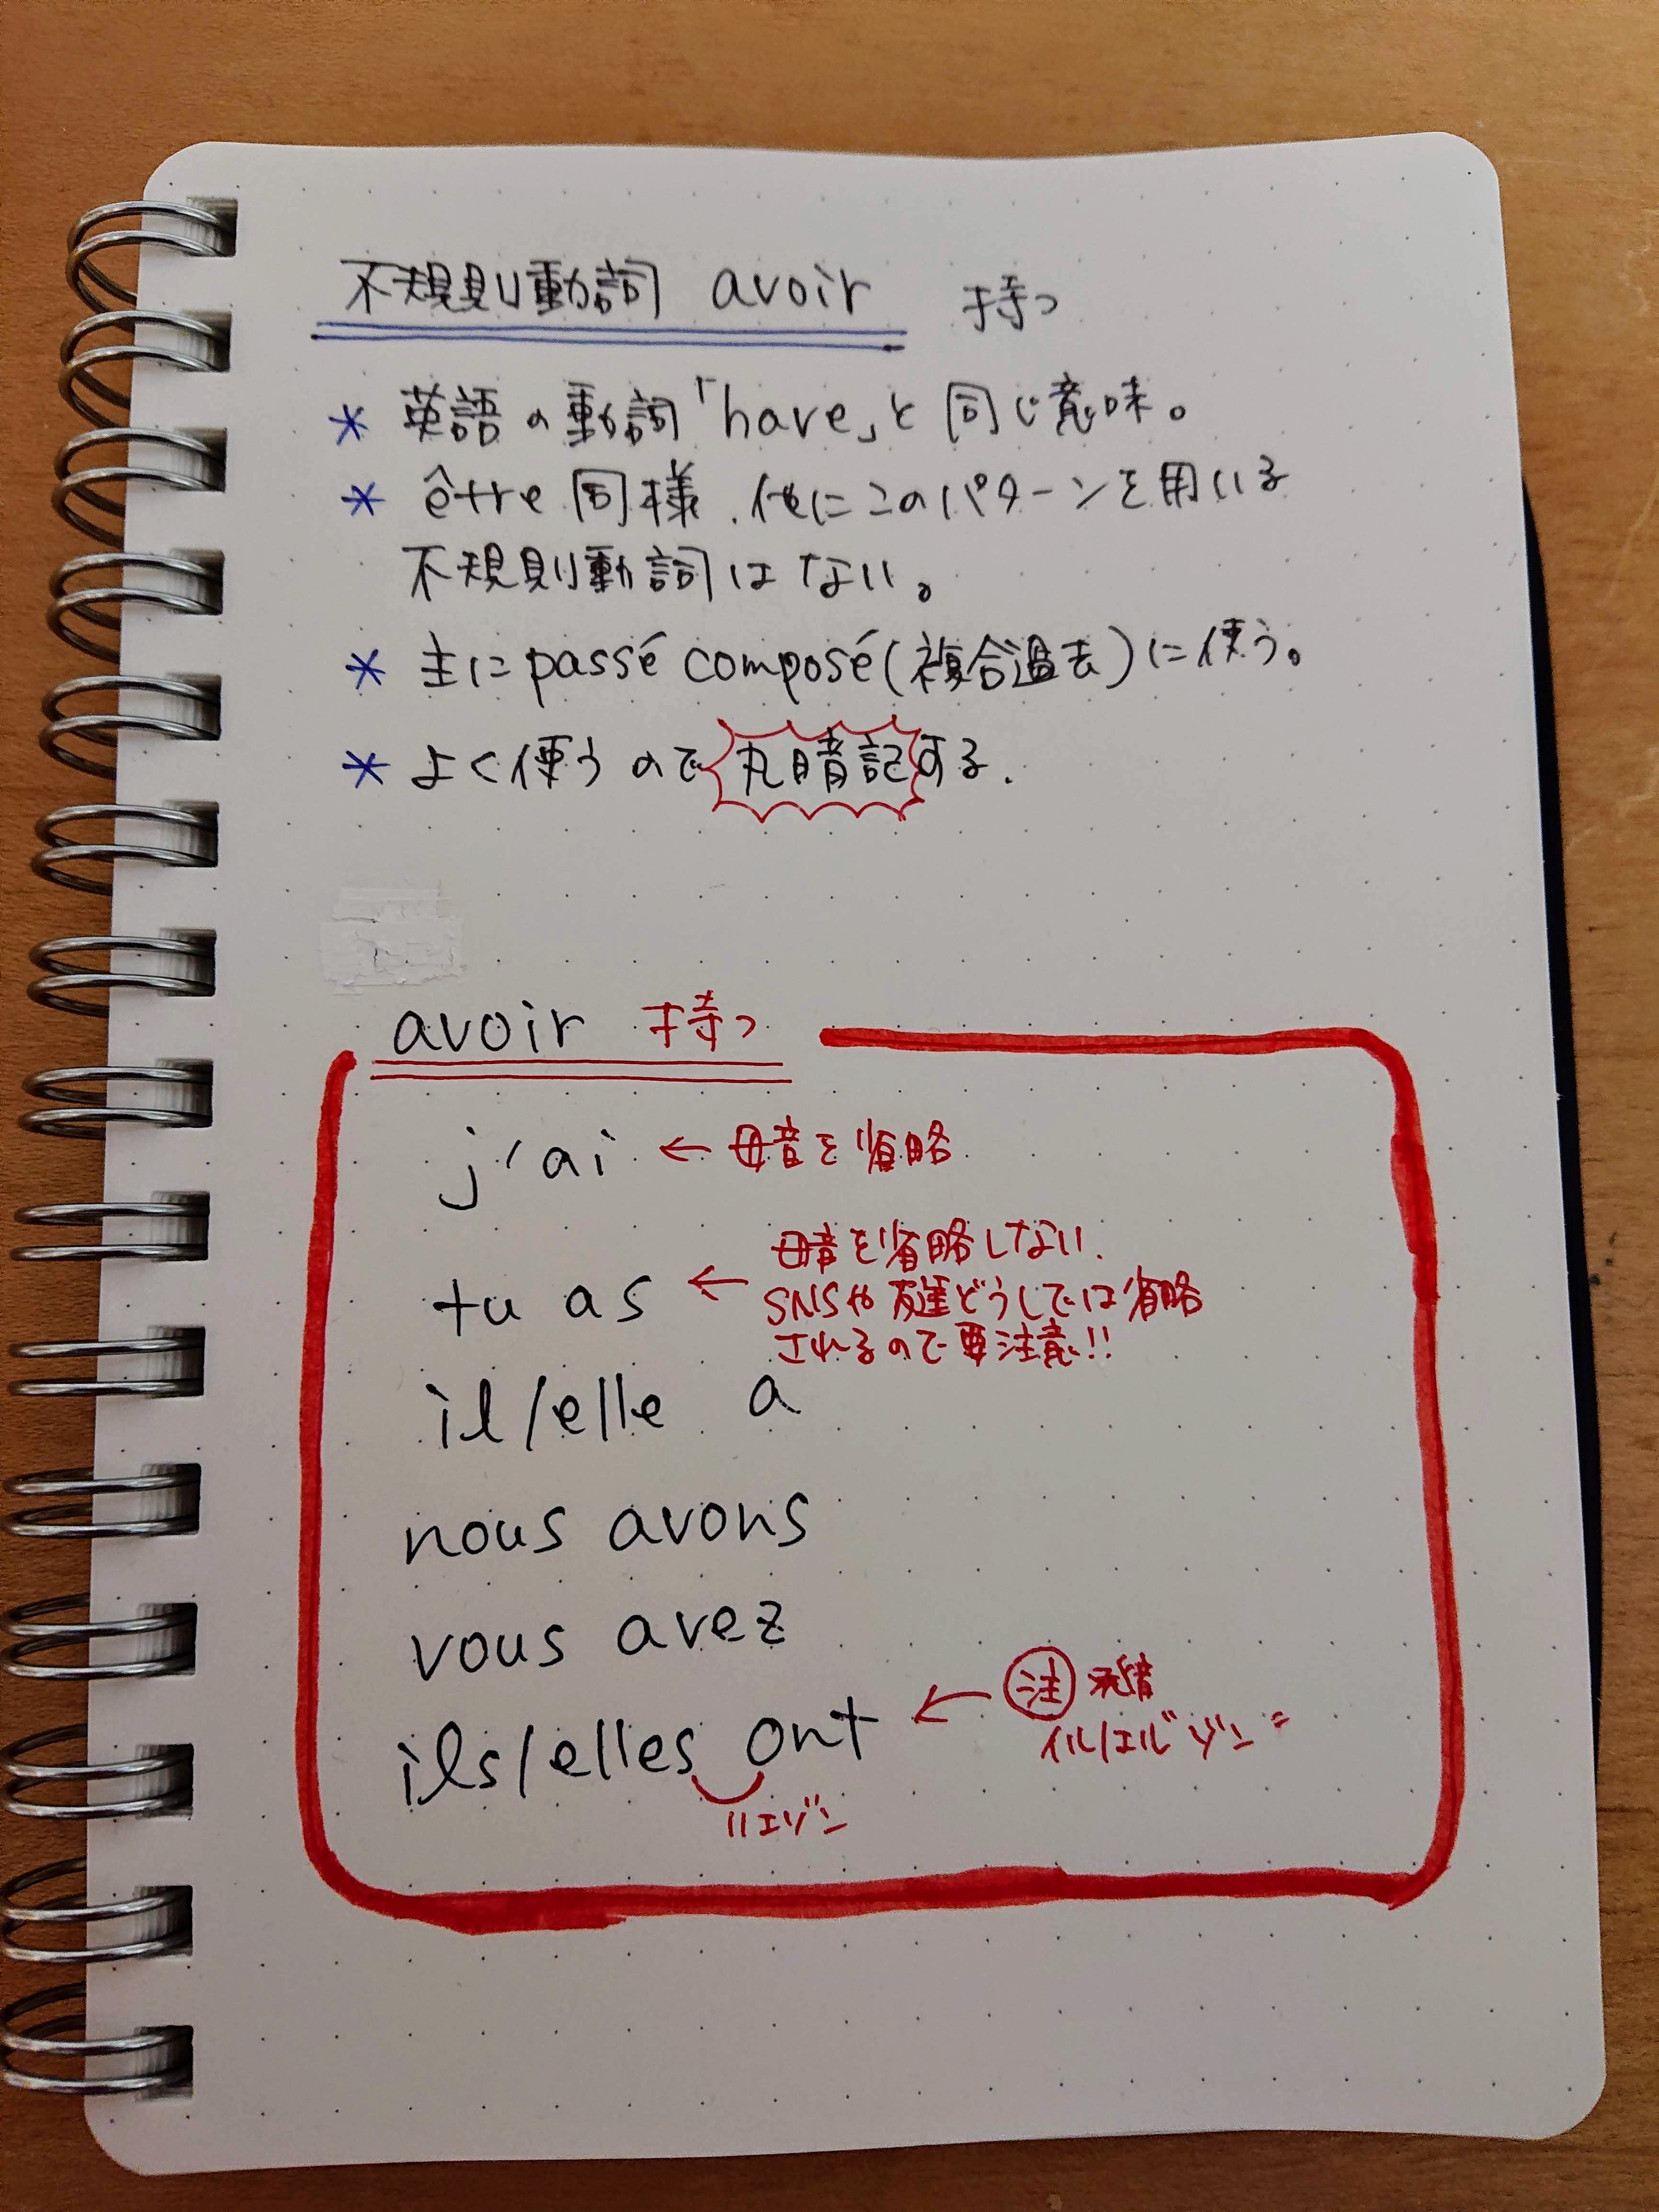 不規則動詞 avoir 持つ
* 英語の動詞「have」と同じ意味。
* être同様、他にこのパターンを用いる
不規則動詞はない。
* 主にpassé composé(複合過去)に使う。
* よく使うので丸暗記する.
avoir 持つ
j'ai ← 母音を省略
tu as ← 母音を省略しない.
SNSや友達どうしでは省略
されるので要注意!!
il/elle a
nous avons
vous avez
ils/elles ont ← 注 発音
イル/エル ゾン
リエゾン